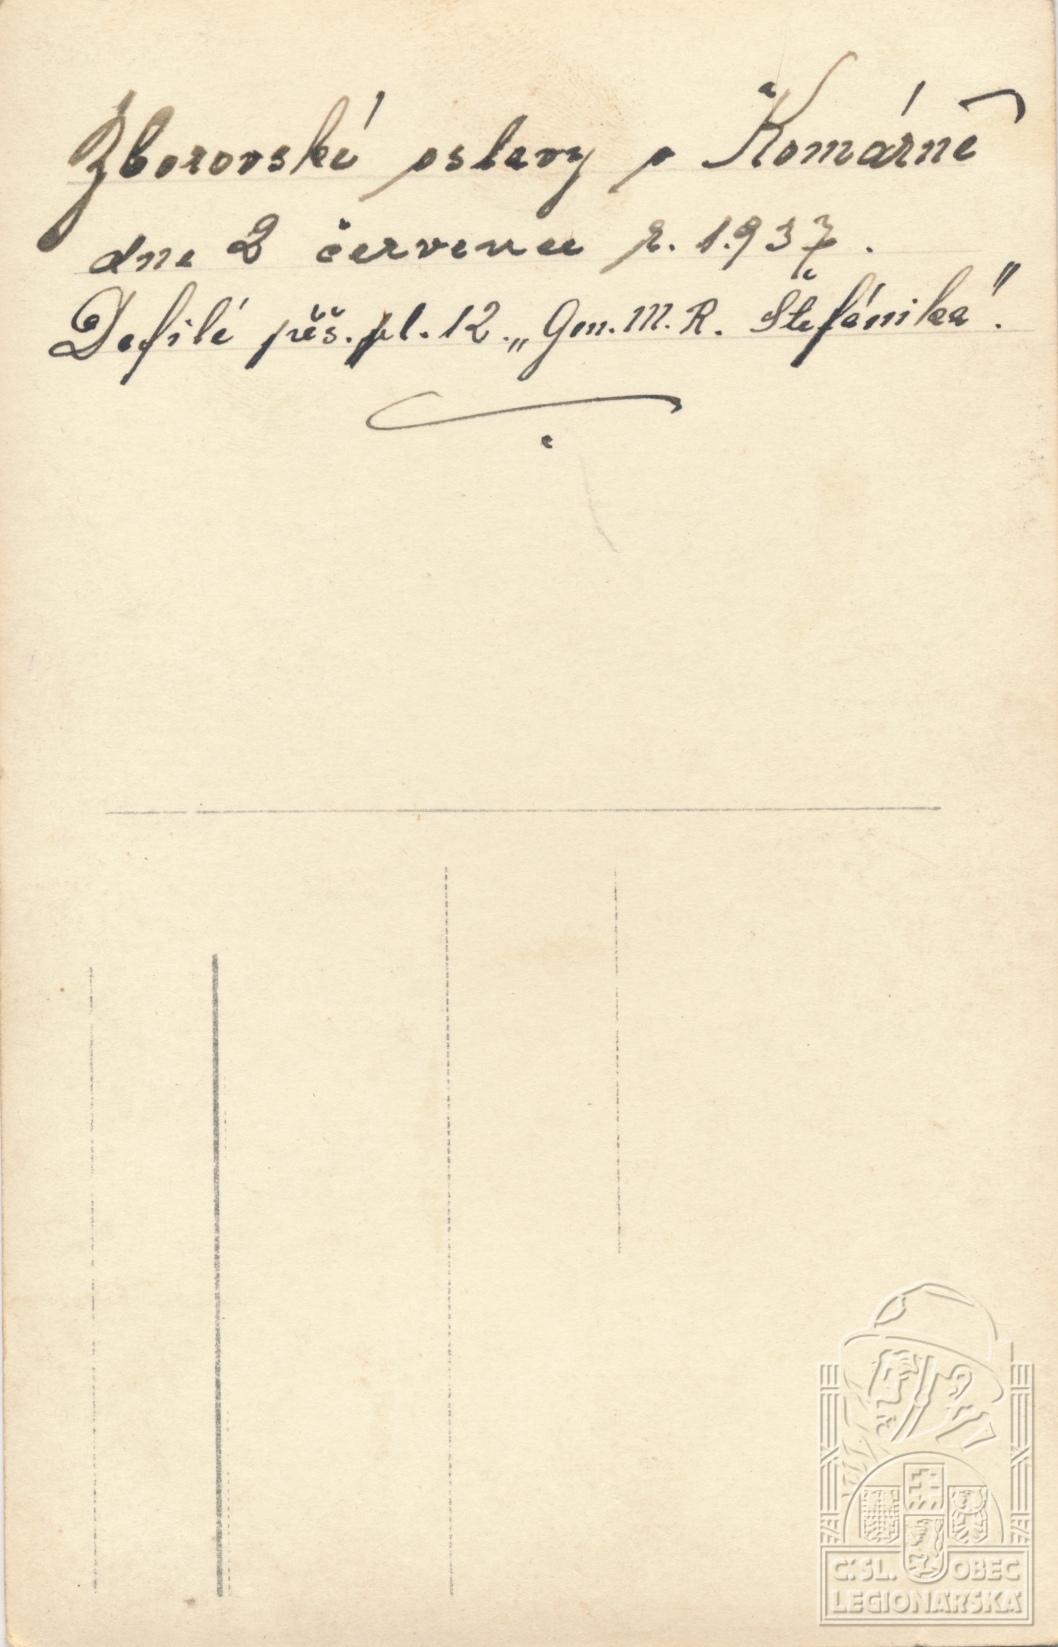 Zborovské oslavy v Komárně
dne 2 července r. 1.937.
Defilé pěš. pl. 12. „Gen. M. R. Štefánika".
Č. SL. OBEC
LEGIONÁŘSKÁ